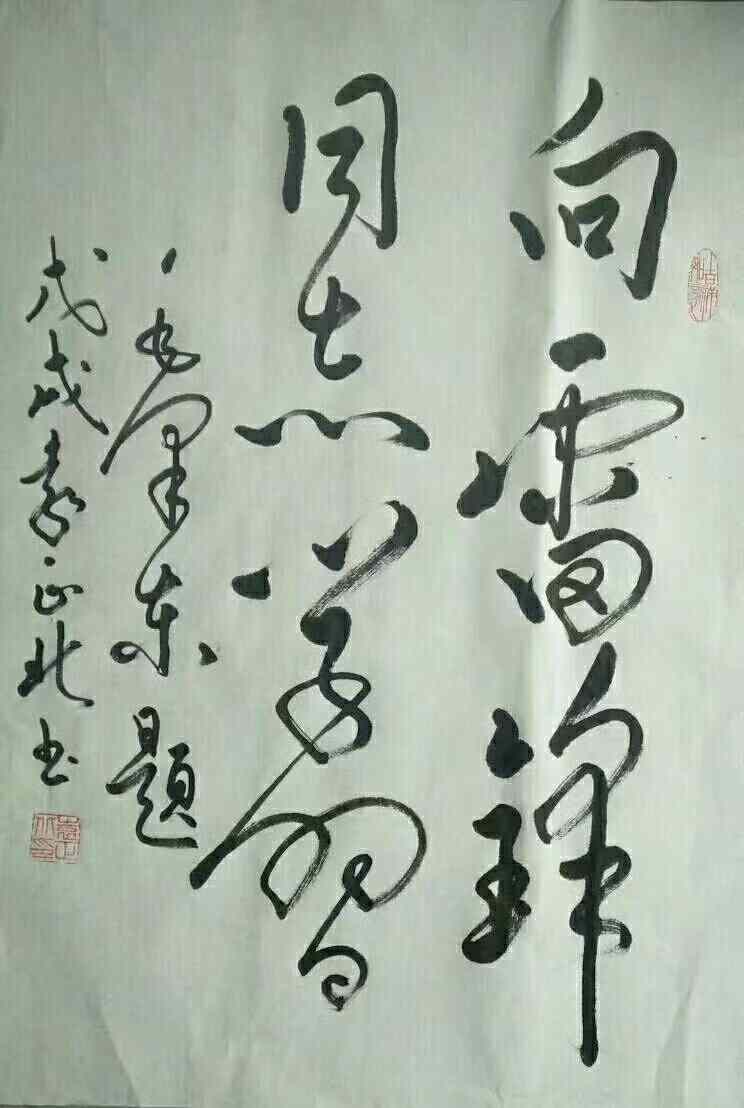 向雷锋
同志学习
毛泽东题
戊戌袁正北书